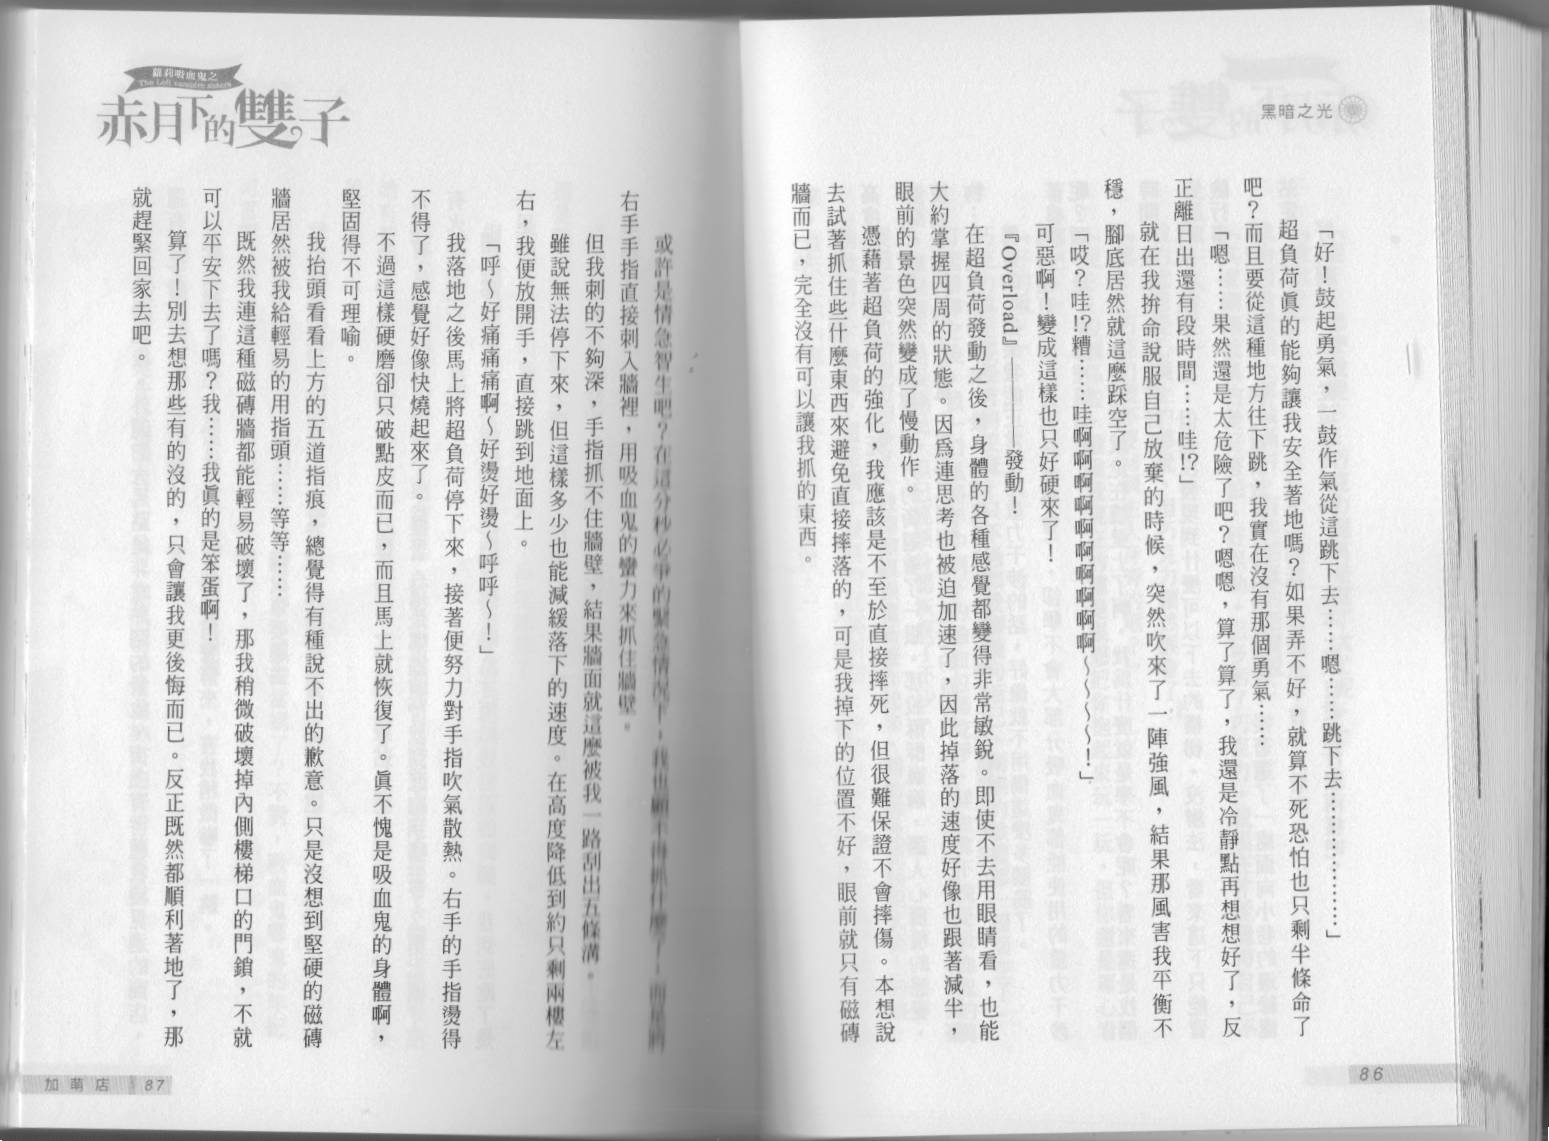 黑暗之光
「好！鼓起勇氣，一鼓作氣從這跳下去……嗯……跳下去………………」
超負荷真的能夠讓我安全著地嗎？如果弄不好，就算不死恐怕也只剩半條命了
吧？而且要從這種地方往下跳，我實在沒有那個勇氣……
「嗯……果然還是太危險了吧？嗯嗯，算了算了，我還是冷靜點再想想好了，反
正離日出還有段時間……哇!?」
就在我拚命說服自己放棄的時候，突然吹來了一陣強風，結果那風害我平衡不
穩，腳底居然就這麼踩空了。
「哎？哇!?糟……哇啊啊啊啊啊啊啊啊啊啊～～～～！」
可惡啊！變成這樣也只好硬來了！
『Overload』——發動！
在超負荷發動之後，身體的各種感覺都變得非常敏銳。即使不去用眼睛看，也能
大約掌握四周的狀態。因為連思考也被迫加速了，因此掉落的速度好像也跟著減半，
眼前的景色突然變成了慢動作。
憑藉著超負荷的強化，我應該是不至於直接摔死，但很難保證不會摔傷。本想說
去試著抓住些什麼東西來避免直接摔落的，可是我掉下的位置不好，眼前就只有磁磚
牆而已，完全沒有可以讓我抓的東西。
86
蘿莉吸血鬼之
The Loli vampire sisters
赤月下的雙子
或許是情急智生吧？在這分秒必爭的緊急情況下，我也顧不得抓什麼了——而是將
右手手指直接刺入牆裡，用吸血鬼的蠻力來抓住牆壁。
但我刺的不夠深，手指抓不住牆壁，結果牆面就這麼被我一路刮出五條溝。
雖說無法停下來，但這樣多少也能減緩落下的速度。在高度降低到約只剩兩樓左
右，我便放開手，直接跳到地面上。
「呼～好痛痛痛啊～好燙好燙～呼呼～！」
我落地之後馬上將超負荷停下來，接著便努力對手指吹氣散熱。右手的手指燙得
不得了，感覺好像快燒起來了。
不過這樣硬磨卻只破點皮而已，而且馬上就恢復了。真不愧是吸血鬼的身體啊，
堅固得不可理喻。
我抬頭看看上方的五道指痕，總覺得有種說不出的歉意。只是沒想到堅硬的磁磚
牆居然被我給輕易的用指頭……等等……
既然我連這種磁磚牆都能輕易破壞了，那我稍微破壞掉內側樓梯口的門鎖，不就
可以平安下去了嗎？我……我真的是笨蛋啊！
算了！別去想那些有的沒的，只會讓我更後悔而已。反正既然都順利著地了，那
就趕緊回家去吧。
加萌店
87